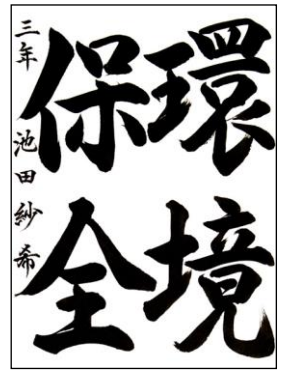 環境
保全
三年 池田紗希